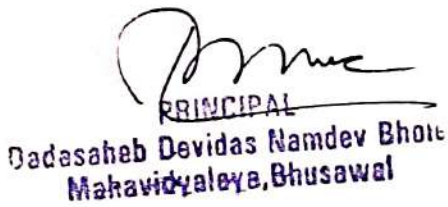 PRINCIPAL
Dadasaheb Devidas Namdev Bhole
Mahavidyalaya,Bhusawal